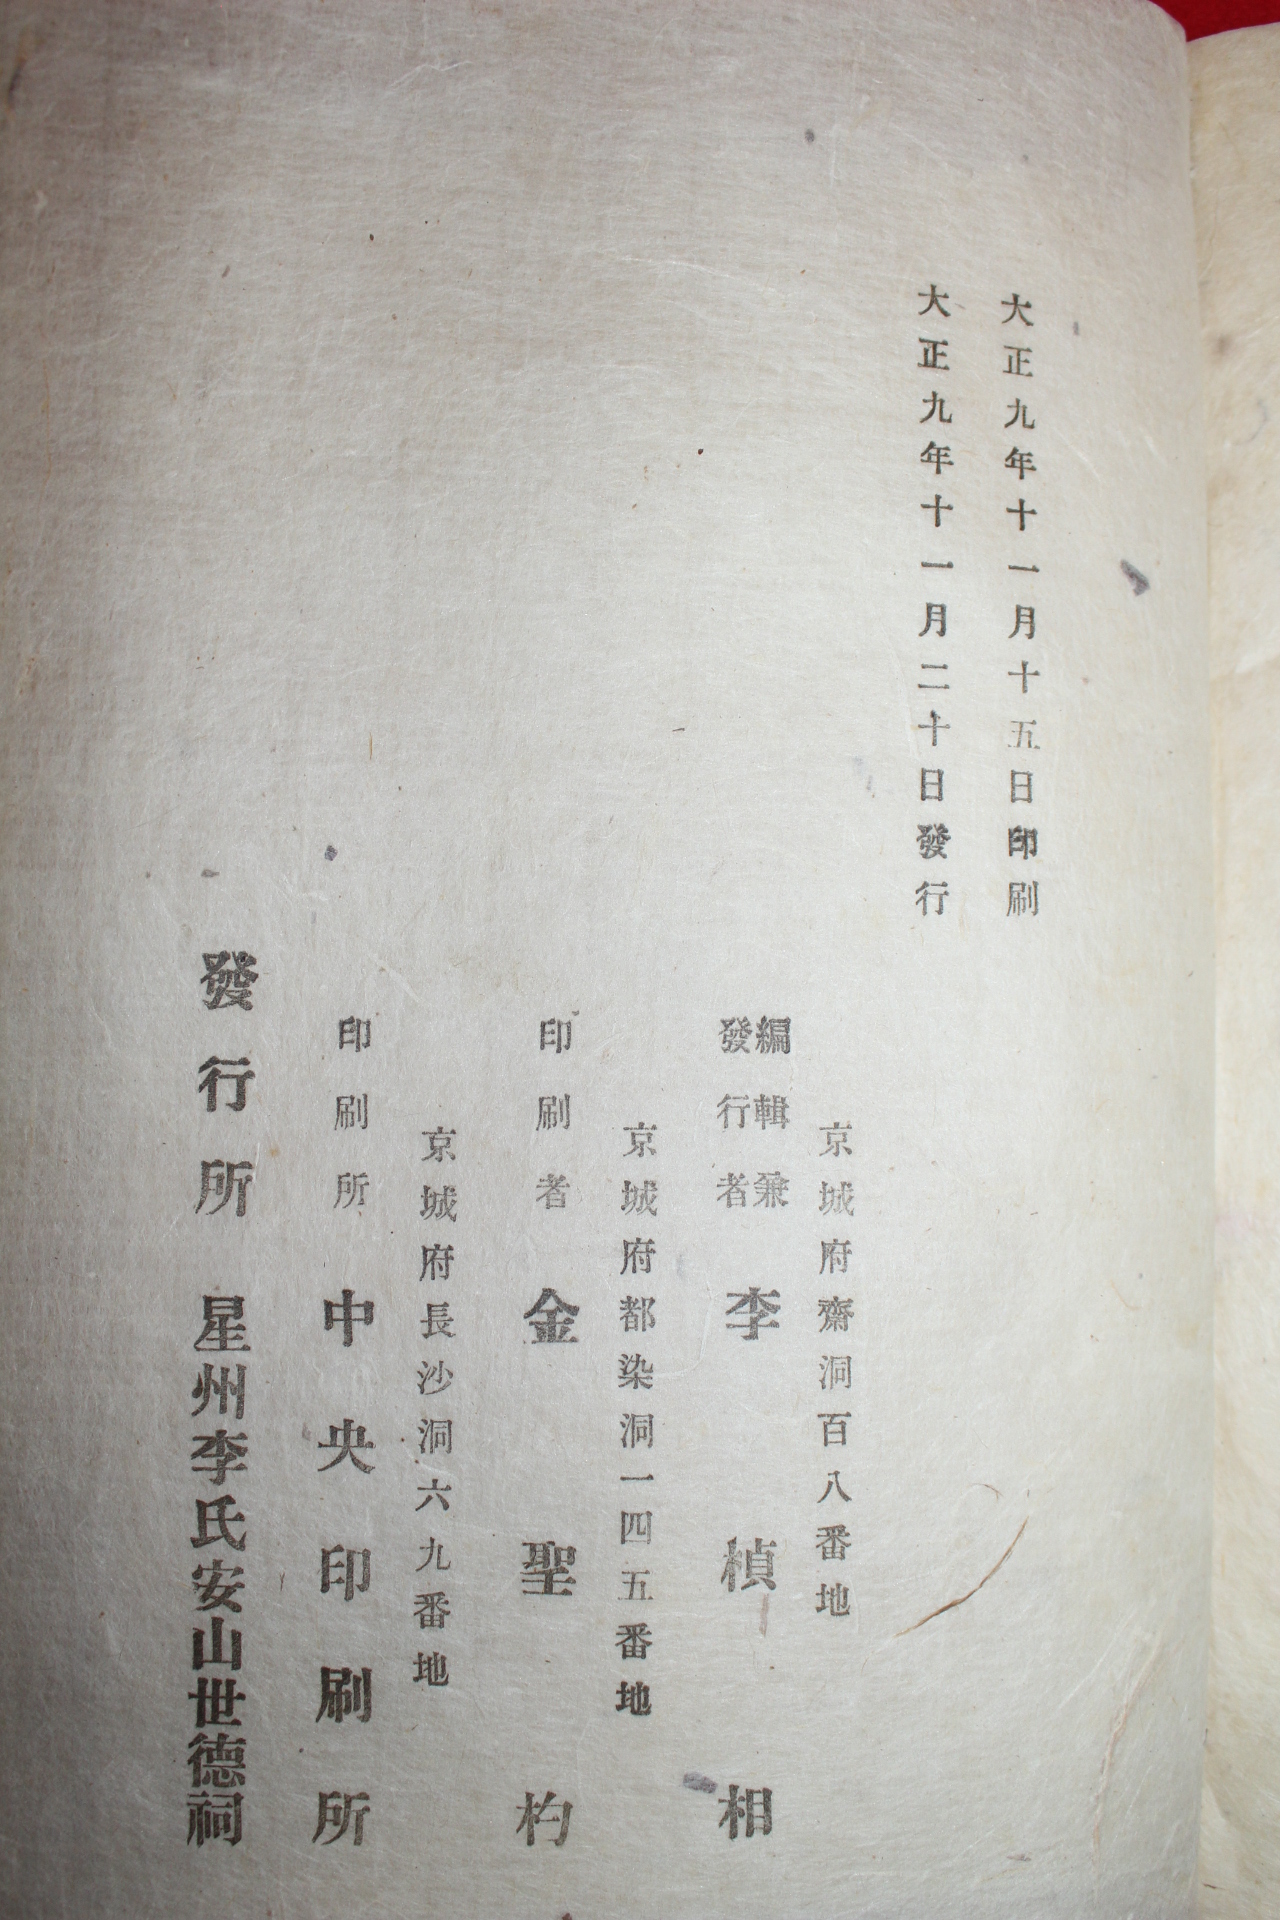 大正九年十一月十五日印刷
大正九年十一月二十日發行
京城府齋洞百八番地
編輯兼
發行者
李楨相
京城府都染洞一四五番地
印刷者 金聖杓
京城府長沙洞六九番地
印刷所 中央印刷所
發行所 星州李氏安山世德祠